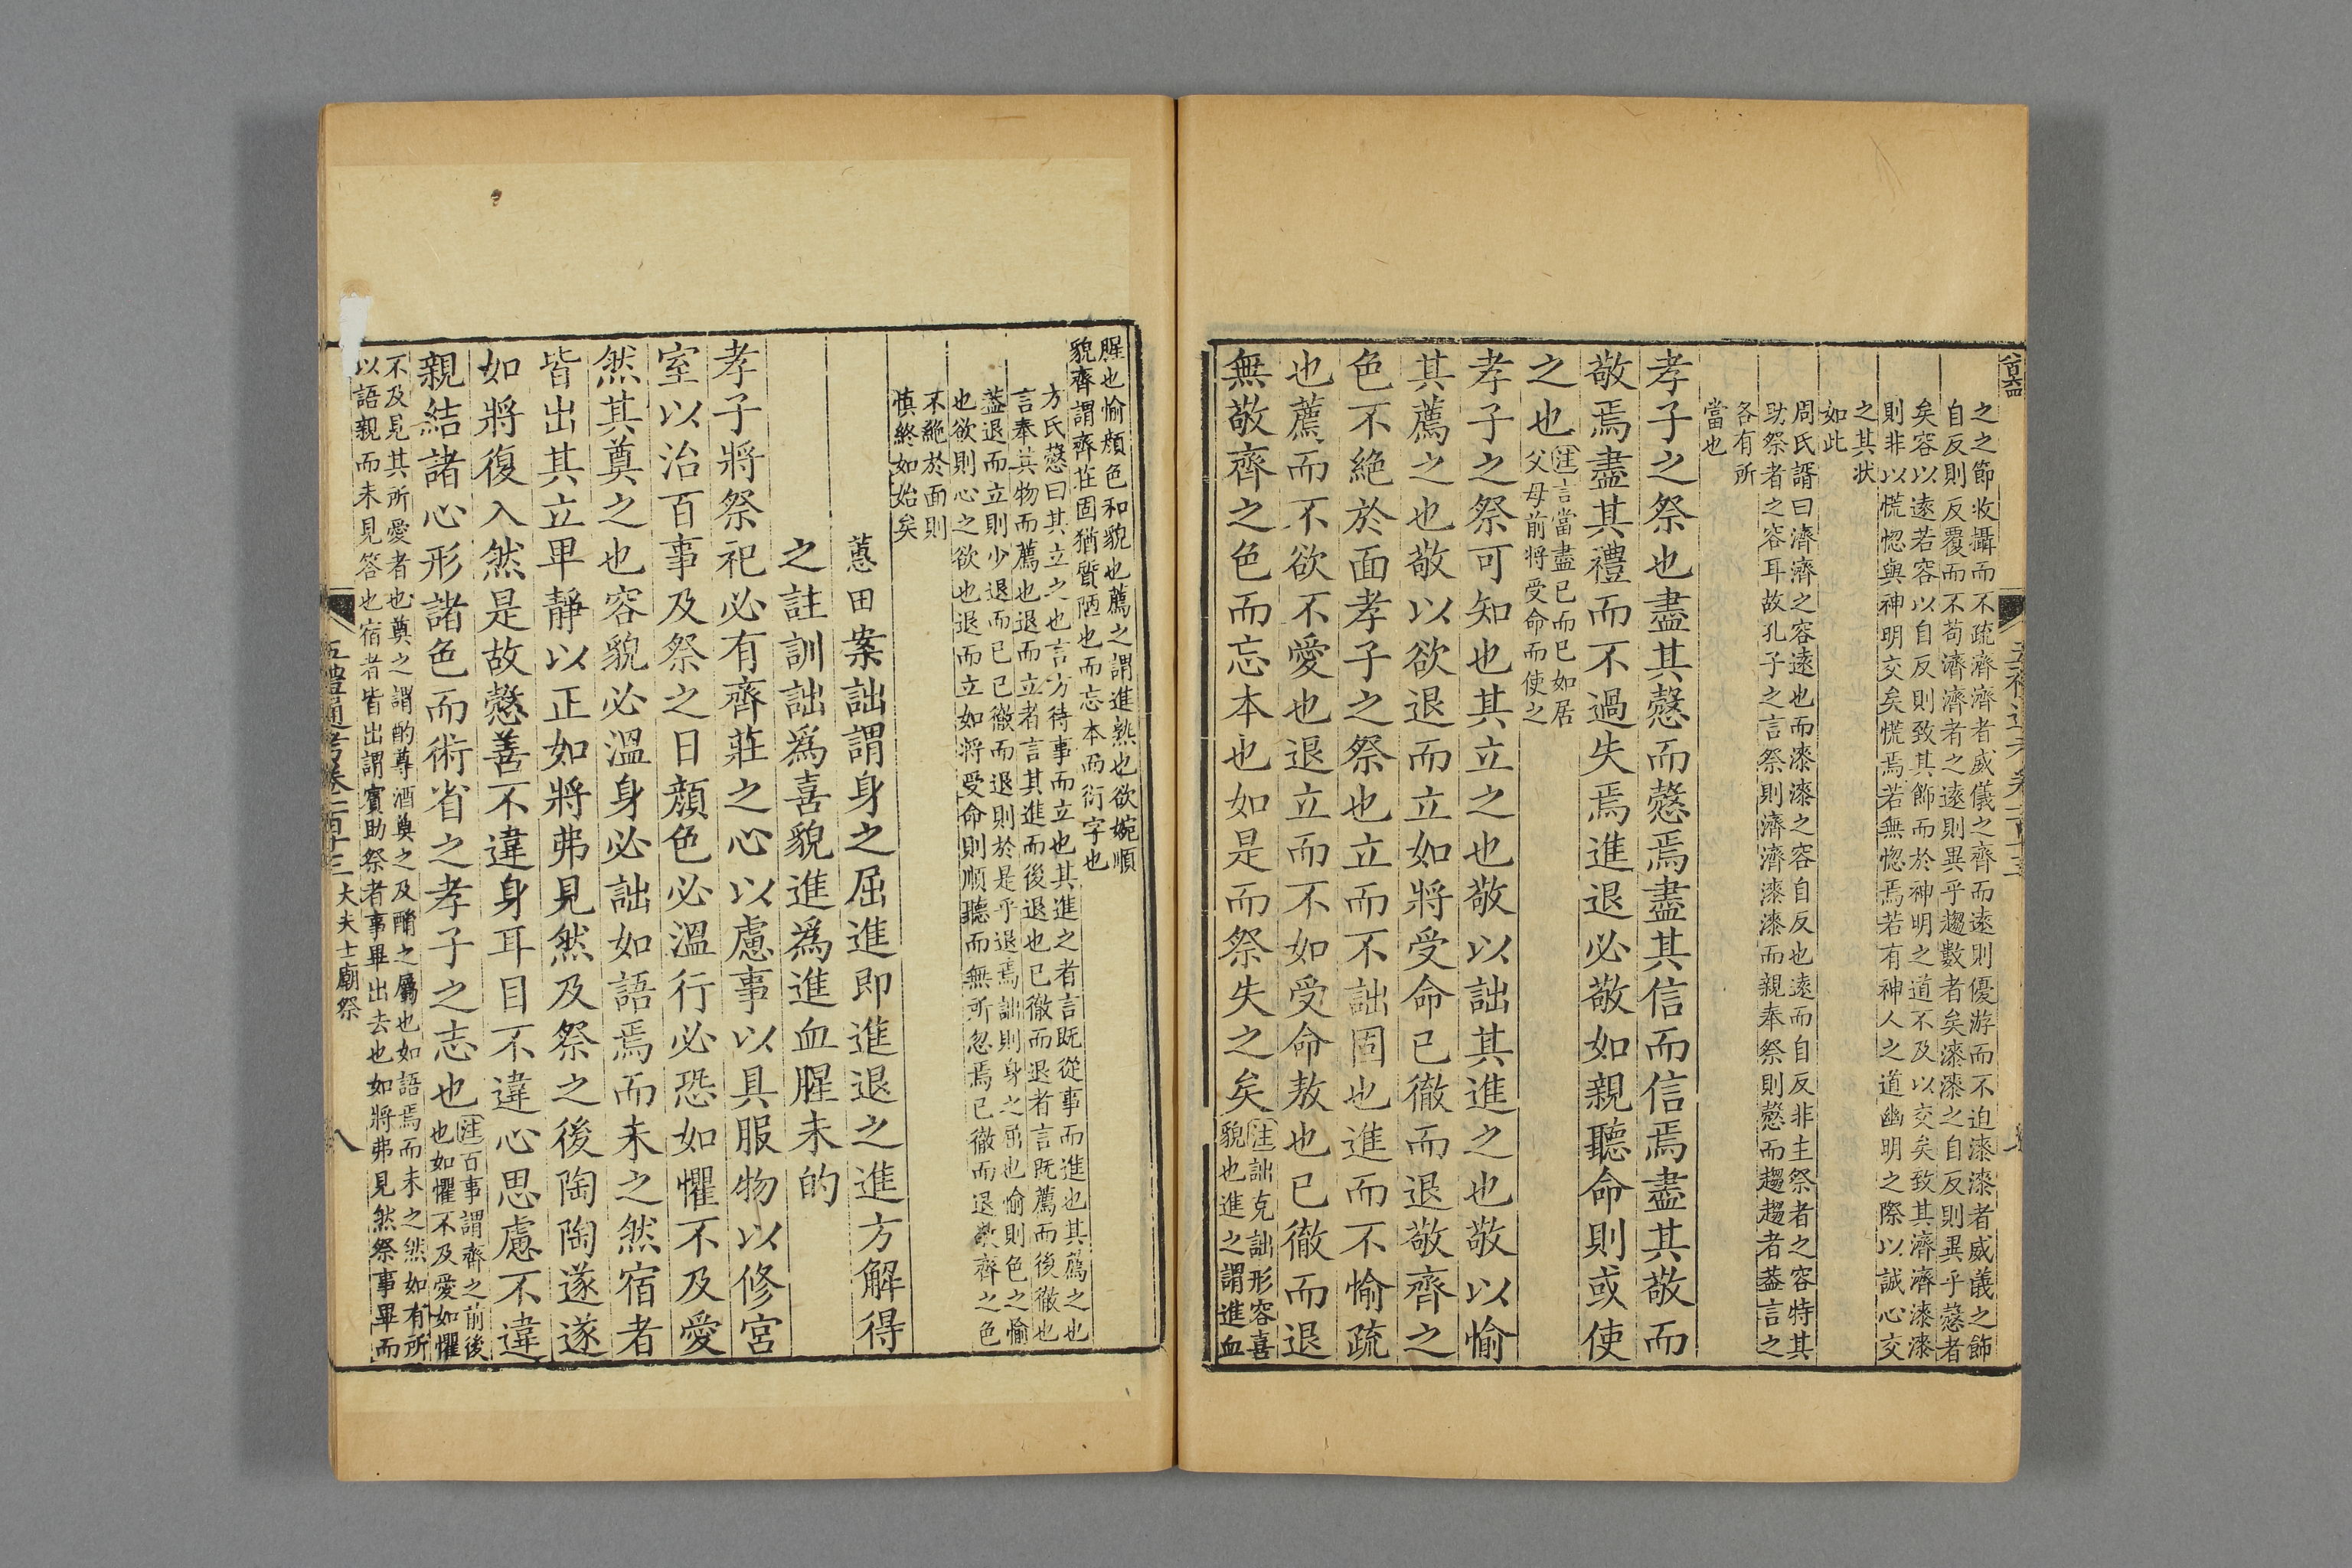 之之節收攝而不疏濟濟者威儀之齊而遠則優游而不迫漆漆者威儀之飾
自反則反覆而不苟濟濟者之遠則異乎趨數者矣漆漆之自反則異乎慤者
矣容以遠若容以自反則致其飾而於神明之道不及以交矣致其濟濟漆漆
則非以慌惚與神明交矣慌焉若無惚焉若有神人之道幽明之際以誠心交
之其状
如此
周氏諝曰濟濟之容遠也而漆漆之容自反也遠而自反非主祭者之容特其
助祭者之容耳故孔子之言祭則濟濟漆漆而親奉祭則慤而趨趨者葢言之
各有所
當也
孝子之祭也盡其慤而慤焉盡其信而信焉盡其敬而
敬焉盡其禮而不過失焉進退必敬如親聽命則或使
之也注言當盡已而已如居
父母前將受命而使之
孝子之祭可知也其立之也敬以詘其進之也敬以愉
其薦之也敬以欲退而立如將受命已徹而退敬齊之
色不絶於面孝子之祭也立而不詘固也進而不愉疏
也薦而不欲不愛也退立而不如受命敖也已徹而退
無敬齊之色而忘本也如是而祭失之矣注詘充詘形容喜
貌也進之謂進血
腥也愉顔色和貌也薦之謂進熟也欲婉順
貌齊謂齊莊固猶質陋也而忘本而衍字也
方氏慤曰其立之也言方待事而立也其進之者言既從事而進也其薦之也
言奉其物而薦也退而立者言其進而後退也已徹而退者言既薦而後徹也
葢退而立則少退而已已徹而退則於是乎退焉詘則身之屈也愉則色之愉
也欲則心之欲也退而立如將受命則順聽而無所忽焉已徹而退敬齊之色
不絶於面則
慎終如始矣
蕙田案詘謂身之屈進即進退之進方解得
之註訓詘爲喜貌進爲進血腥未的
孝子將祭祀必有齊莊之心以慮事以具服物以修宮
室以治百事及祭之日顔色必溫行必恐如懼不及愛
然其奠之也容貌必溫身必詘如語焉而未之然宿者
皆出其立卑靜以正如將弗見然及祭之後陶陶遂遂
如將復入然是故慤善不違身耳目不違心思慮不違
親結諸心形諸色而術省之孝子之志也注百事謂齊之前後
也如懼不及愛如懼
不及見其所愛者也奠之謂酌尊酒奠之及酳之屬也如語焉而未之然如有所
以語親而未見答也宿者皆出謂賓助祭者事畢出去也如將弗見然祭事畢而
五禮通考卷一百十三 大夫士廟祭 八